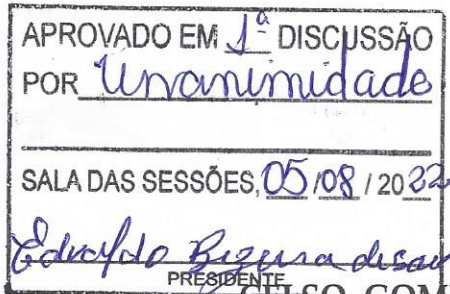 APROVADO EM 1ª DISCUSSÃO
POR Unanimidade
SALA DAS SESSÕES, 05/08/2022
Edvaldo Bezerra de
PRESIDENTE
CELSO GOM